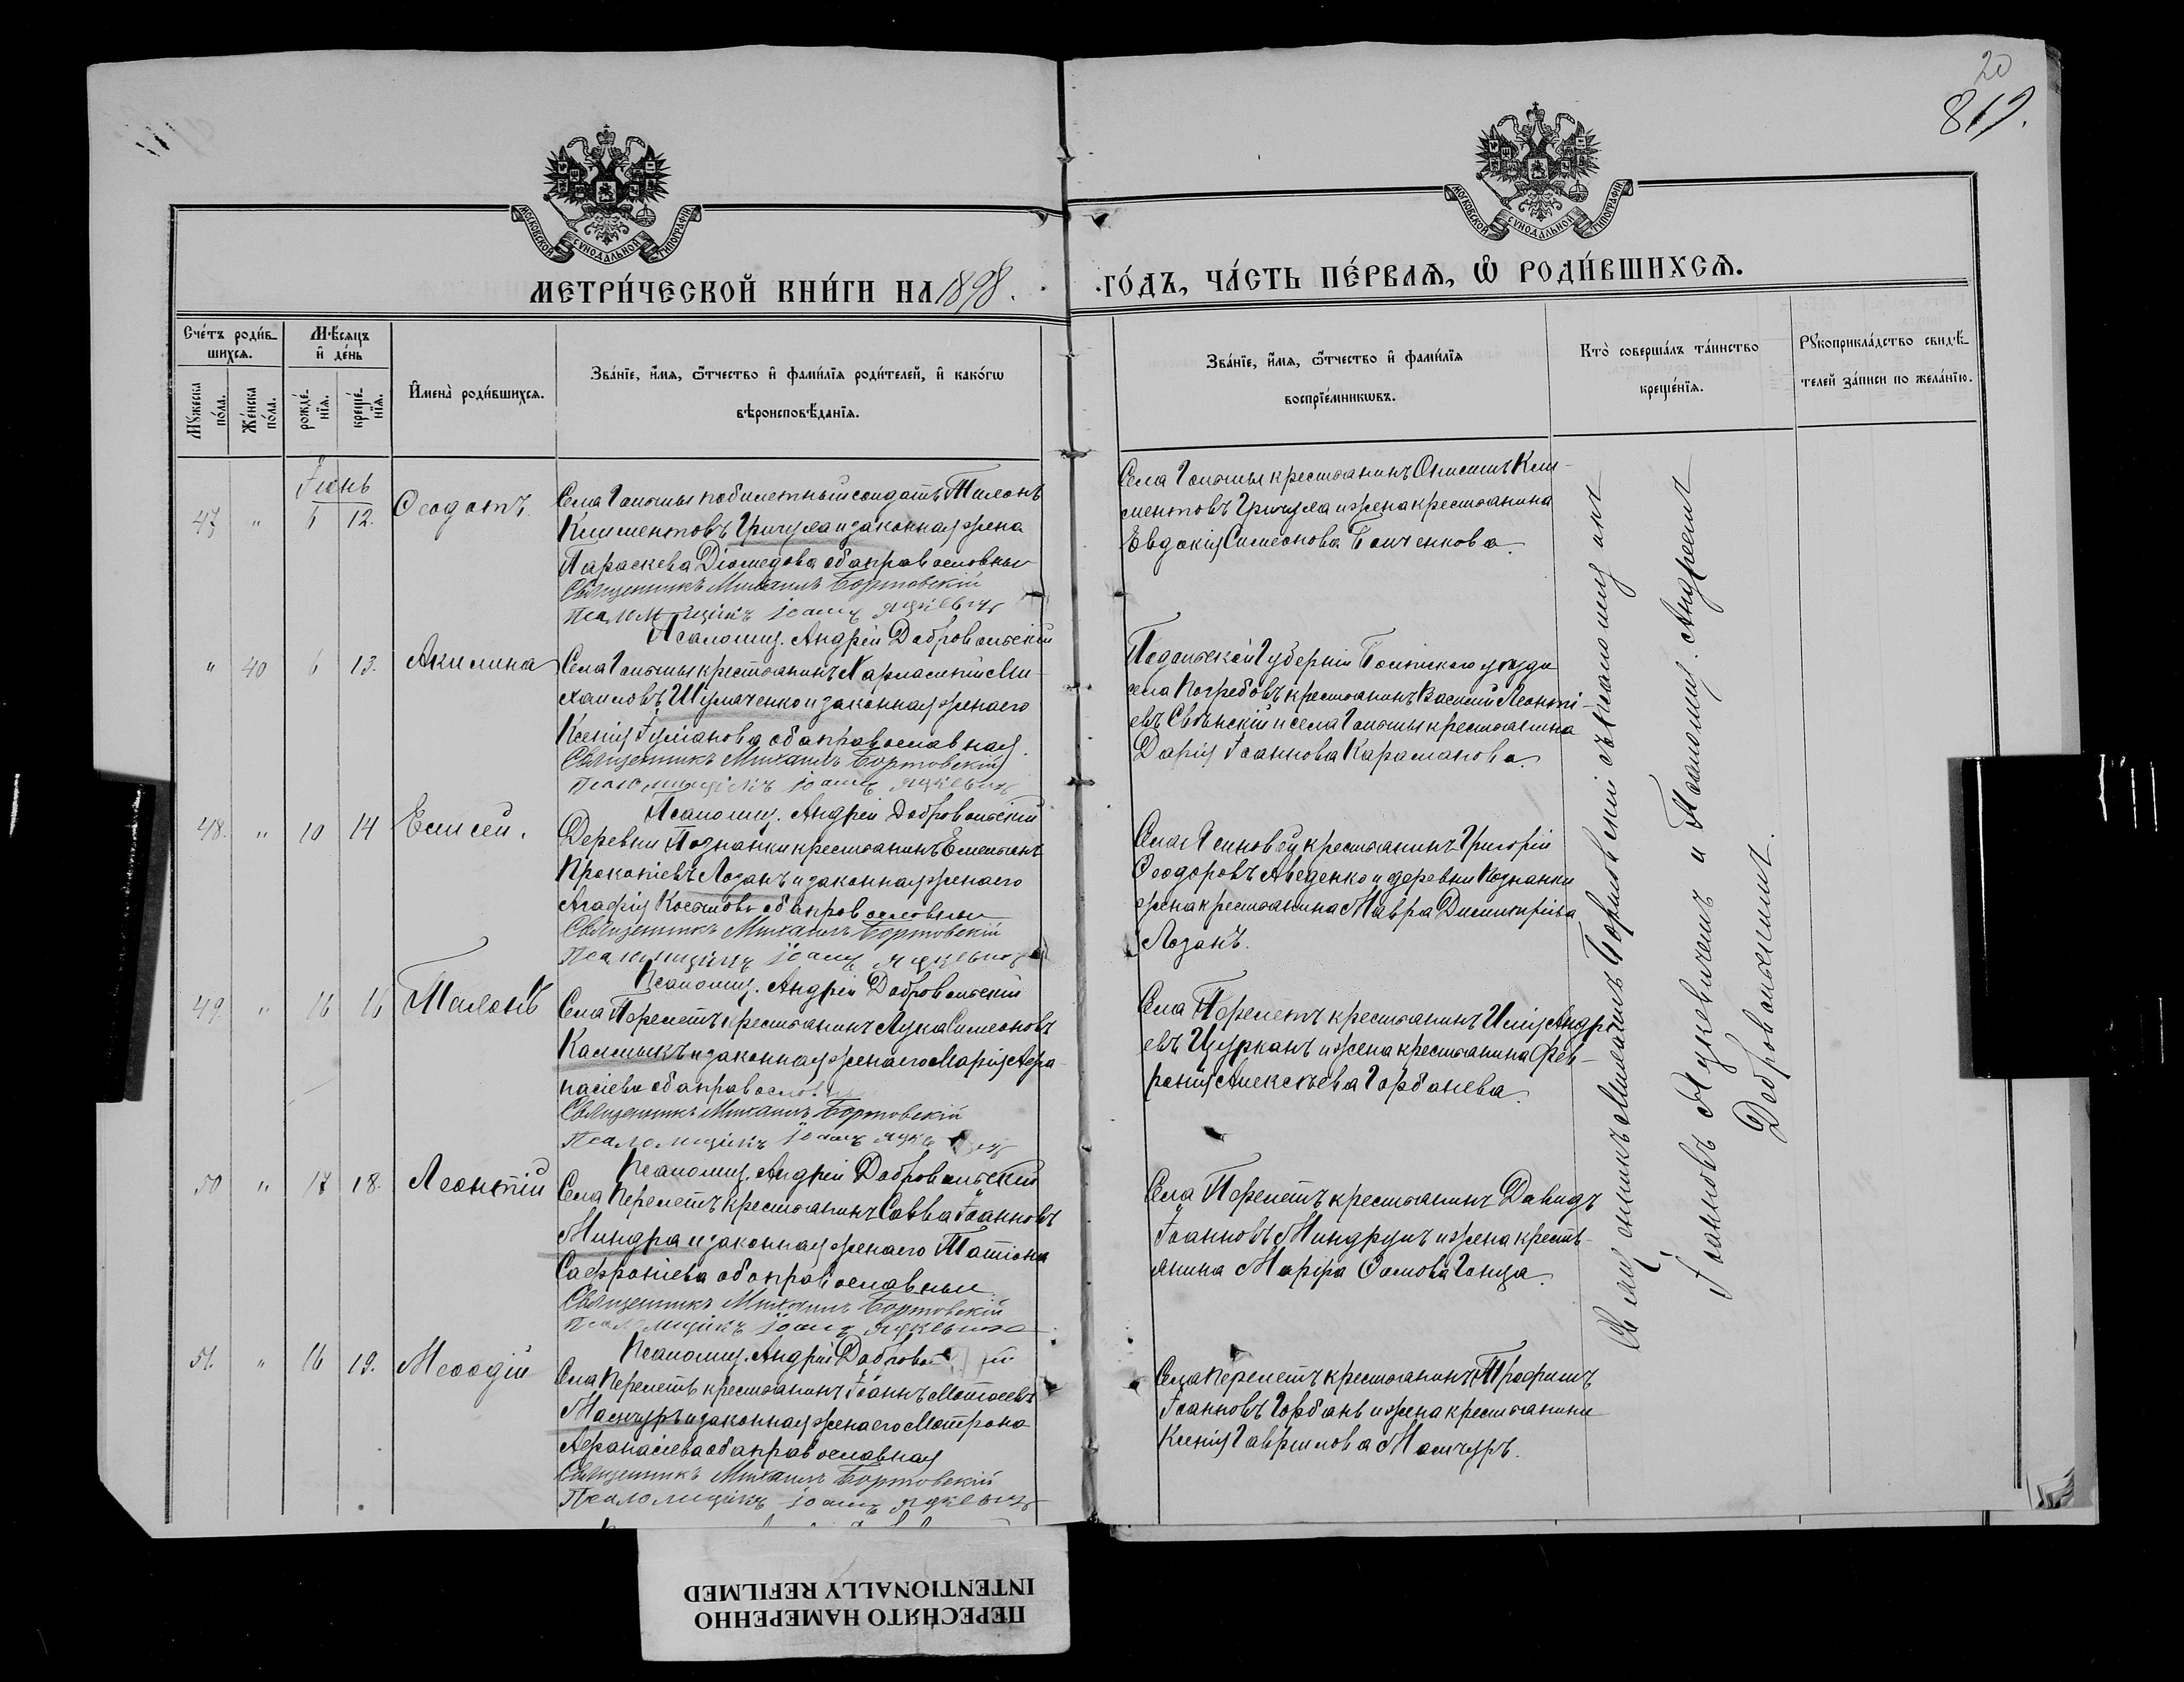 20
819.
МОСКОВСКОЙ СѴНОДАЛЬНОЙ ТИПОГРАФІИ
МОСКОВСКОЙ СѴНОДАЛЬНОЙ ТИПОГРАФІИ
МЕТРИ́ЧЕСКОЙ КНИ́ГИ НА 1898.
ГО́ДЪ, ЧА́СТЬ ПЕ́РВАѦ, Ѽ РОДИ́ВШИХСѦ.
Сче́тъ роди́в-
шихсѧ.
Мꙋ́жеска
по́ла.
Же́нска
по́ла.
Мѣ́сѧцъ
и҆ де́нь
рожде́-
нїѧ.
креще́-
нїѧ.
И҆мена̀ роди́вшихсѧ.
Зва́нїе, и҆́мѧ, ѻ҆́тчество и҆ фами́лїѧ роди́телей, и҆ како́гѡ
вѣроисповѣ́данїѧ.
Зва́нїе, и҆́мѧ, ѻ҆́тчество и҆ фами́лїѧ
воспрїе́мникѡвъ.
Кто̀ соверша́лъ та́инство
креще́нїѧ.
Рꙋкоприкла́дство свидѣ́-
телей за́писи по жела́нїю.
Іюнь
47 " 6 12. Ѳеодотъ.
Села Гоюшы побилетный солдатъ Тилонъ
Климентовъ Гричула и законная жена
Параскева Діомедова оба православные
Священникъ Михаилъ Бортовскій
Псаломщикъ Іоаннъ Яцкевичъ
Псаломщ. Андрей Добровольскій
крестьянинъ Онисимъ Кли-
ментовъ Гричула и жена крестьянина
Евдокія Симеонова Бонченкова.
" 40 6 13. Акилина
крестьянинъ Харлампій Ми-
хаиловъ Шумаченко и законная жена его
Ксенія Іуліанова оба православная.
Священникъ Михаилъ Бортовскій
Псаломщикъ Іоаннъ Яцкевичъ
Псаломщ. Андрей Добровольскій
Подольской Губерніи Балтскаго уѣзда
села Погребовъ крестьянинъ Василій Леонті-
евъ и села крестьянина
Дарія Іоаннова Караманова.
48. " 10 14 Елисей.
Деревни Познанки крестьянинъ Емельянъ
Прокопіевъ Лозанъ и законная жена его
Агафія Костова оба православные
Священникъ Михаилъ Бортовскій
Псаломщикъ Іоаннъ Яцкевичъ
Псаломщ. Андрей Добровольскій
Села Ясиновец крестьянинъ Григорій
Ѳеодоровъ Аведенко и деревни Познанки
жена крестьянина Мавра Димитріева
Лозанъ.
49. " 16 16 Тилонъ
Села Перелетъ крестьянинъ Лука Симеоновъ
Калмыкъ и законная жена его Марія Афа-
насіева оба православные
Священникъ Михаилъ Бортовскій
Псаломщикъ Іоаннъ Яцкевичъ
Псаломщ. Андрей Добровольскій
Села Перелетъ крестьянинъ Илія Андре-
евъ Цурканъ и жена крестьянина Фев-
ронія Алексѣева Горбанева.
50 " 17 18. Леонтій
Села Перелетъ крестьянинъ Савва Іоанновъ
Миндра и законная жена его Татіана
Сафроніева оба православные
Священникъ Михаилъ Бортовскій
Псаломщикъ Іоаннъ Яцкевичъ
Псаломщ. Андрей Добровольскій
Села Перелетъ крестьянинъ Давидъ
Іоанновъ Миндрулъ и жена кресть-
янина Марфа Ѳомова Ганца.
51. " 16 19. Меѳодій
Села Перелетъ крестьянинъ Іоаннъ Матѳеевъ
Мамчуръ и законная жена его Матрона
Афанасіева оба православная
Священникъ Михаилъ Бортовскій
Псаломщикъ Іоаннъ Яцкевичъ
Села Перелетъ крестьянинъ Трофимъ
Іоанновъ Горбанъ и жена крестьянина
Ксенія Гавриилова Мамчуръ.
Священникъ Михаилъ Бортовскій съ псаломщикомъ
Іоанномъ Яцкевичемъ и Псаломщ. Андреемъ
Добровольскимъ.
ПЕРЕСНЯТО НАМЕРЕННО
INTENTIONALLY REFILMED